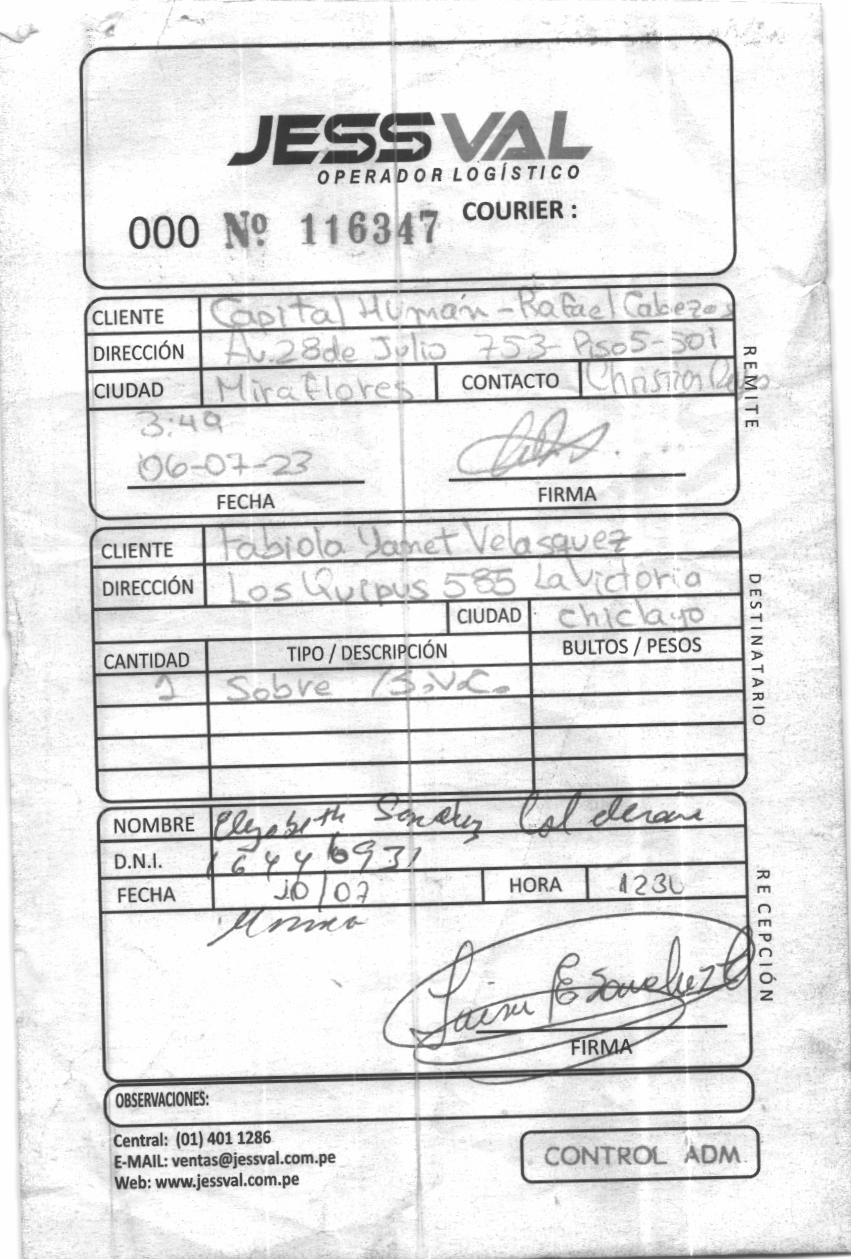 JESSVAL
OPERADOR LOGÍSTICO
000 Nº 116347 COURIER :
REMITE
CLIENTE Capital Humán - Rafael Cabezas
DIRECCIÓN Av. 28 de Julio 753 - Piso 5 - 301
CIUDAD Miraflores CONTACTO Christian
3:49
06-07-23
FECHA FIRMA
DESTINATARIO
CLIENTE Fabiola Yanet Velasquez
DIRECCIÓN Los Quipus 585 La Victoria
CIUDAD Chiclayo
CANTIDAD TIPO / DESCRIPCIÓN BULTOS / PESOS
1 Sobre /S.V.C.
RECEPCIÓN
NOMBRE Elizabeth
D.N.I. 16446931
FECHA 10/07 HORA 1230
FIRMA
OBSERVACIONES:
Central: (01) 401 1286
E-MAIL: ventas@jessval.com.pe
Web: www.jessval.com.pe
CONTROL ADM